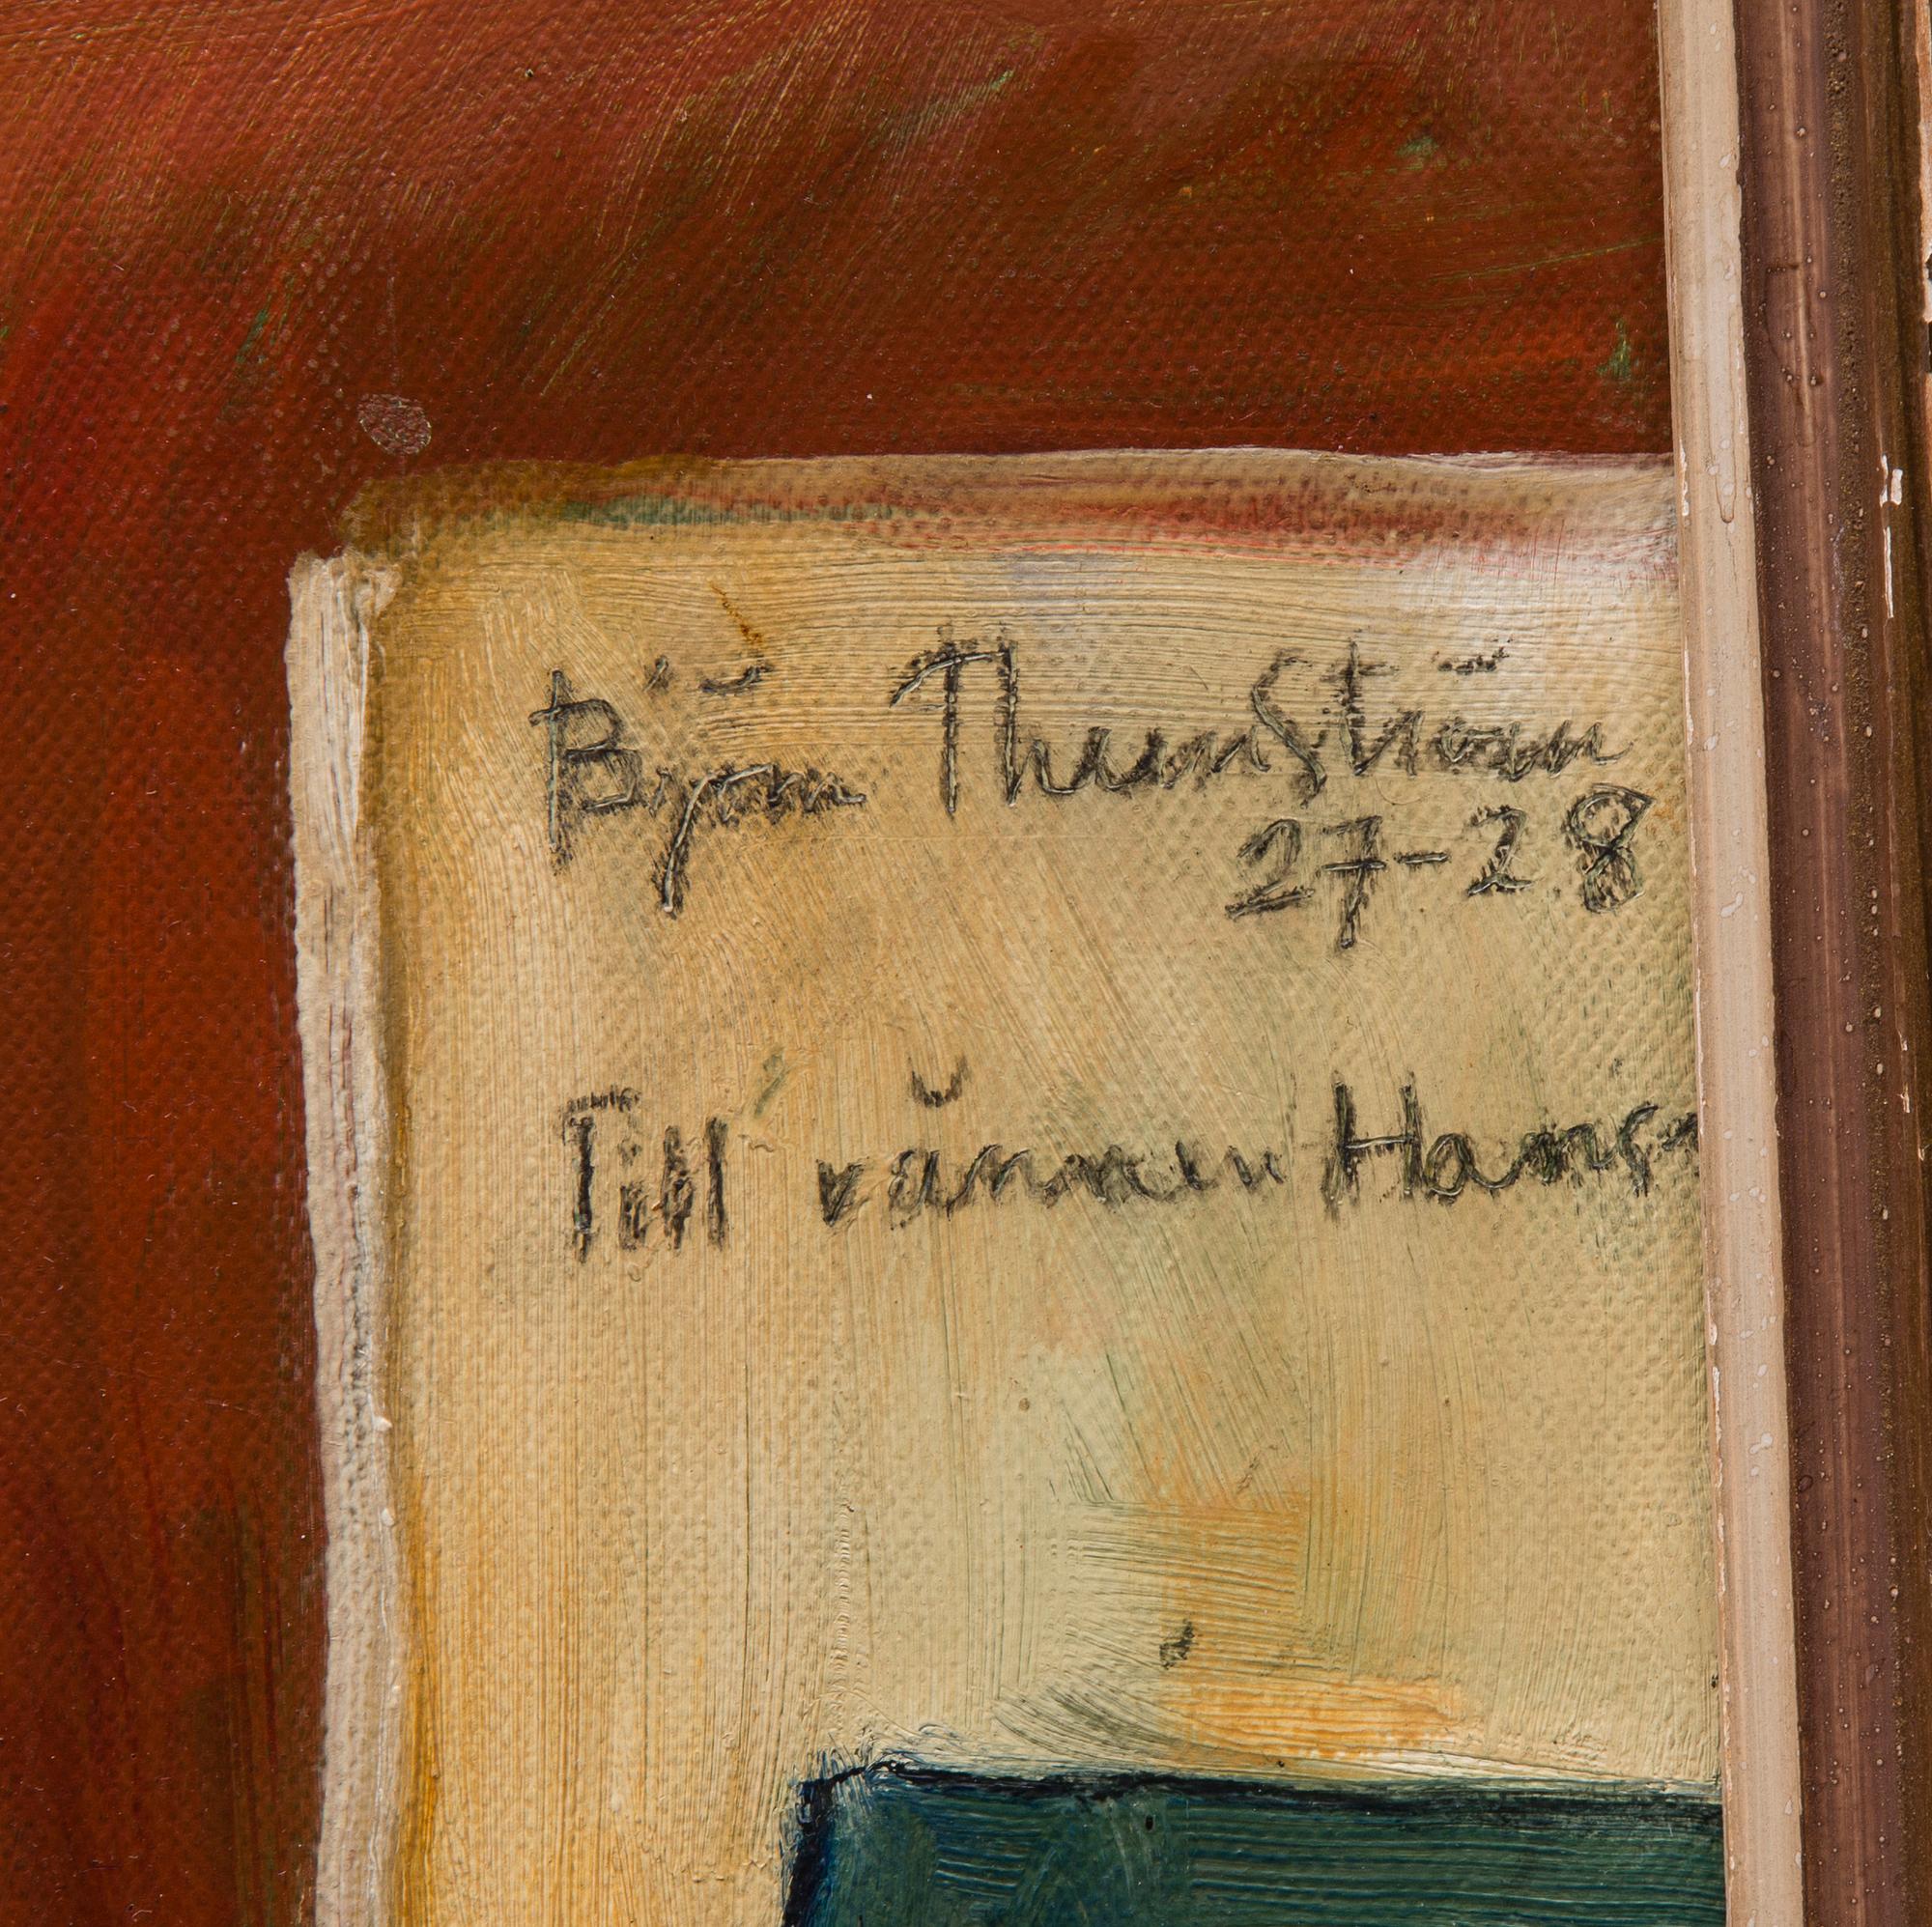 Björn Thunström
27-28
Till vännen Hans